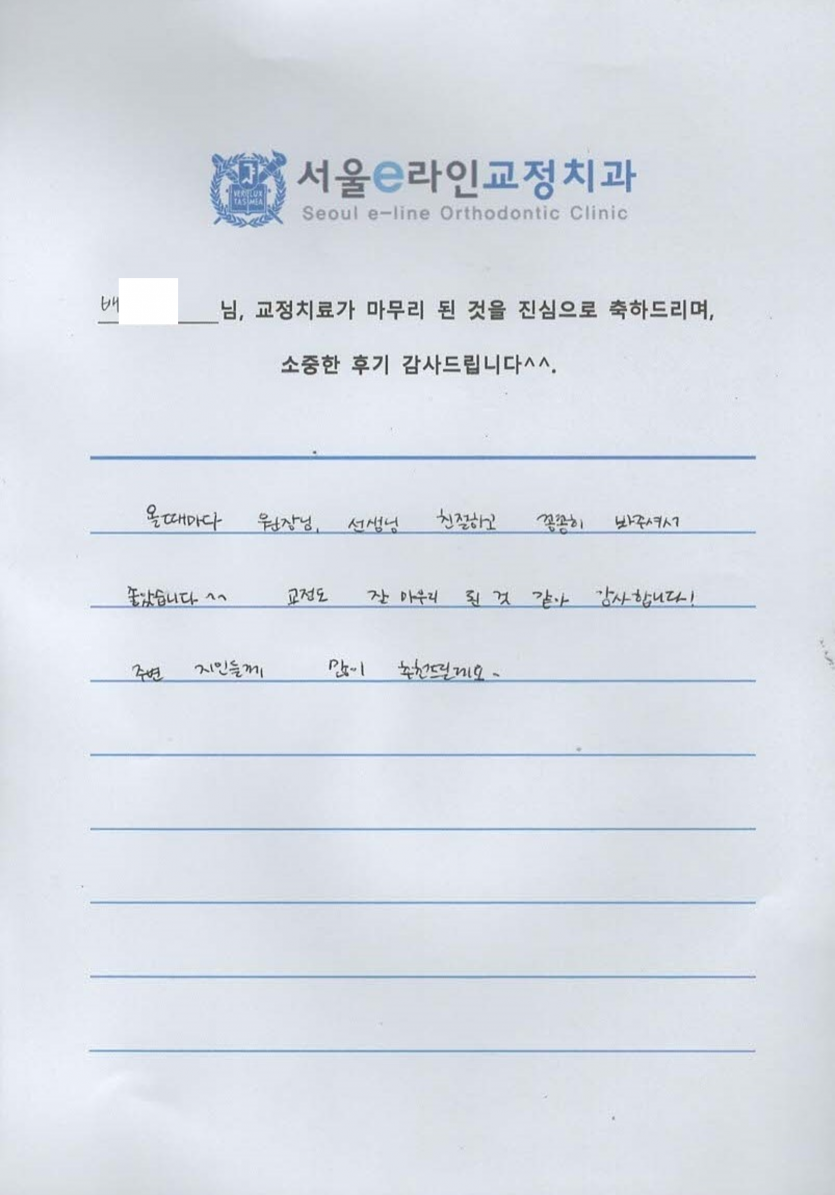 서울e라인교정치과
Seoul e-line Orthodontic Clinic
배 님, 교정치료가 마무리 된 것을 진심으로 축하드리며,
소중한 후기 감사드립니다^^.
올때마다 원장님, 선생님 친절하고 꼼꼼히 봐주셔서
좋았습니다^^ 교정도 잘 마무리 된 것 같아 감사합니다!
주변 지인들께 많이 추천드릴게요~